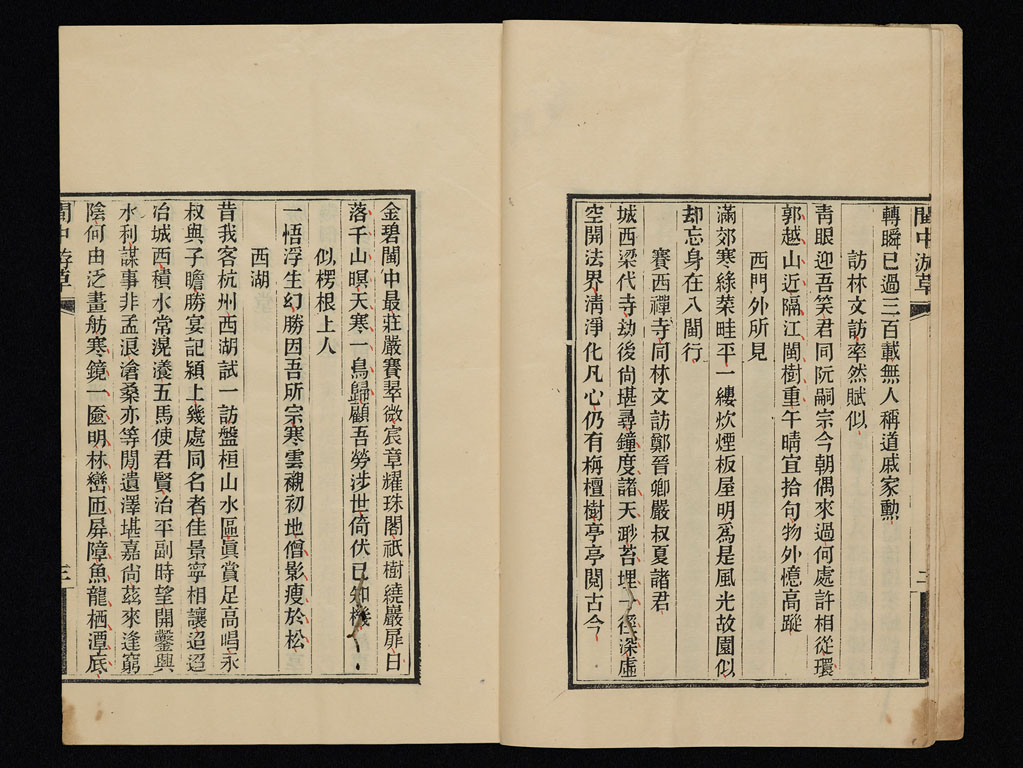 閩中游草
轉瞬已過三百載無人稱道戚家勲
訪林文訪率然賦似
青眼迎吾笑君同阮嗣宗今朝偶來過何處許相從環
郭越山近隔江閩樹重午晴宜拾句物外憶高蹤
西門外所見
滿郊寒綠菜畦平一縷炊煙板屋明爲是風光故園似
却忘身在八閩行
賽西禪寺同林文訪鄭晉卿嚴叔夏諸君
城西梁代寺劫後尙堪尋鐘度諸天𨕖苔埋一徑深虛
空開法界淸淨化凡心仍有栴檀樹亭亭閱古今
二
金碧閩中最莊嚴賽翠微宸章耀珠閣祇樹繞巖扉日
落千山暝天寒一鳥歸顧吾勞涉世倚伏已知機
似楞根上人
一悟浮生幻勝因吾所宗寒雲襯初地僧影瘦於松
西湖
昔我客杭州西湖試一訪盤桓山水區眞賞足高唱永
叔與子瞻勝宴記潁上幾處同名者佳景寧相讓迢迢
冶城西積水常滉瀁五馬使君賢治平副時望開鑿興
水利謀事非孟浪滄桑亦等閒遺澤堪嘉尙茲來逢窮
陰何由泛畫舫寒鏡一匳明林巒匝屏障魚龍栖潭底
閩中游草
三